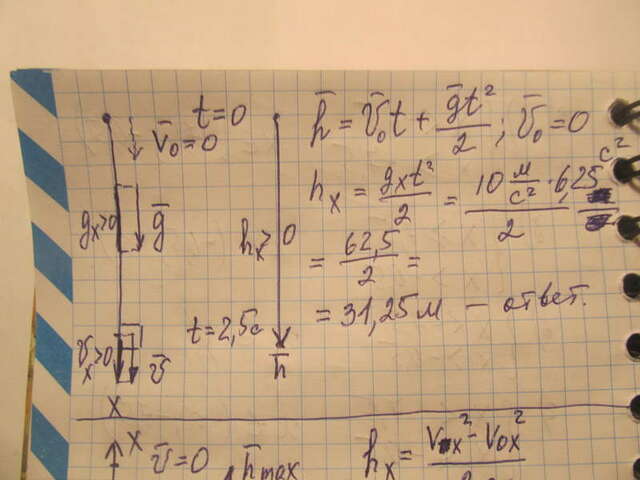 t=0
V̄₀=0
gₓ>0
ḡ
hₓ>0
t=2,5с
vₓ>0
v̄
h̄
X
h̄ = v̄₀t + ḡt²/2; v̄₀=0
hₓ = gₓt²/2 = 10 м/с² · 6,25 с²/2
= 62,5/2 =
= 31,25 м – ответ.
X
v̄=0
h̄max
hₓ = Vₓ² - V₀ₓ²